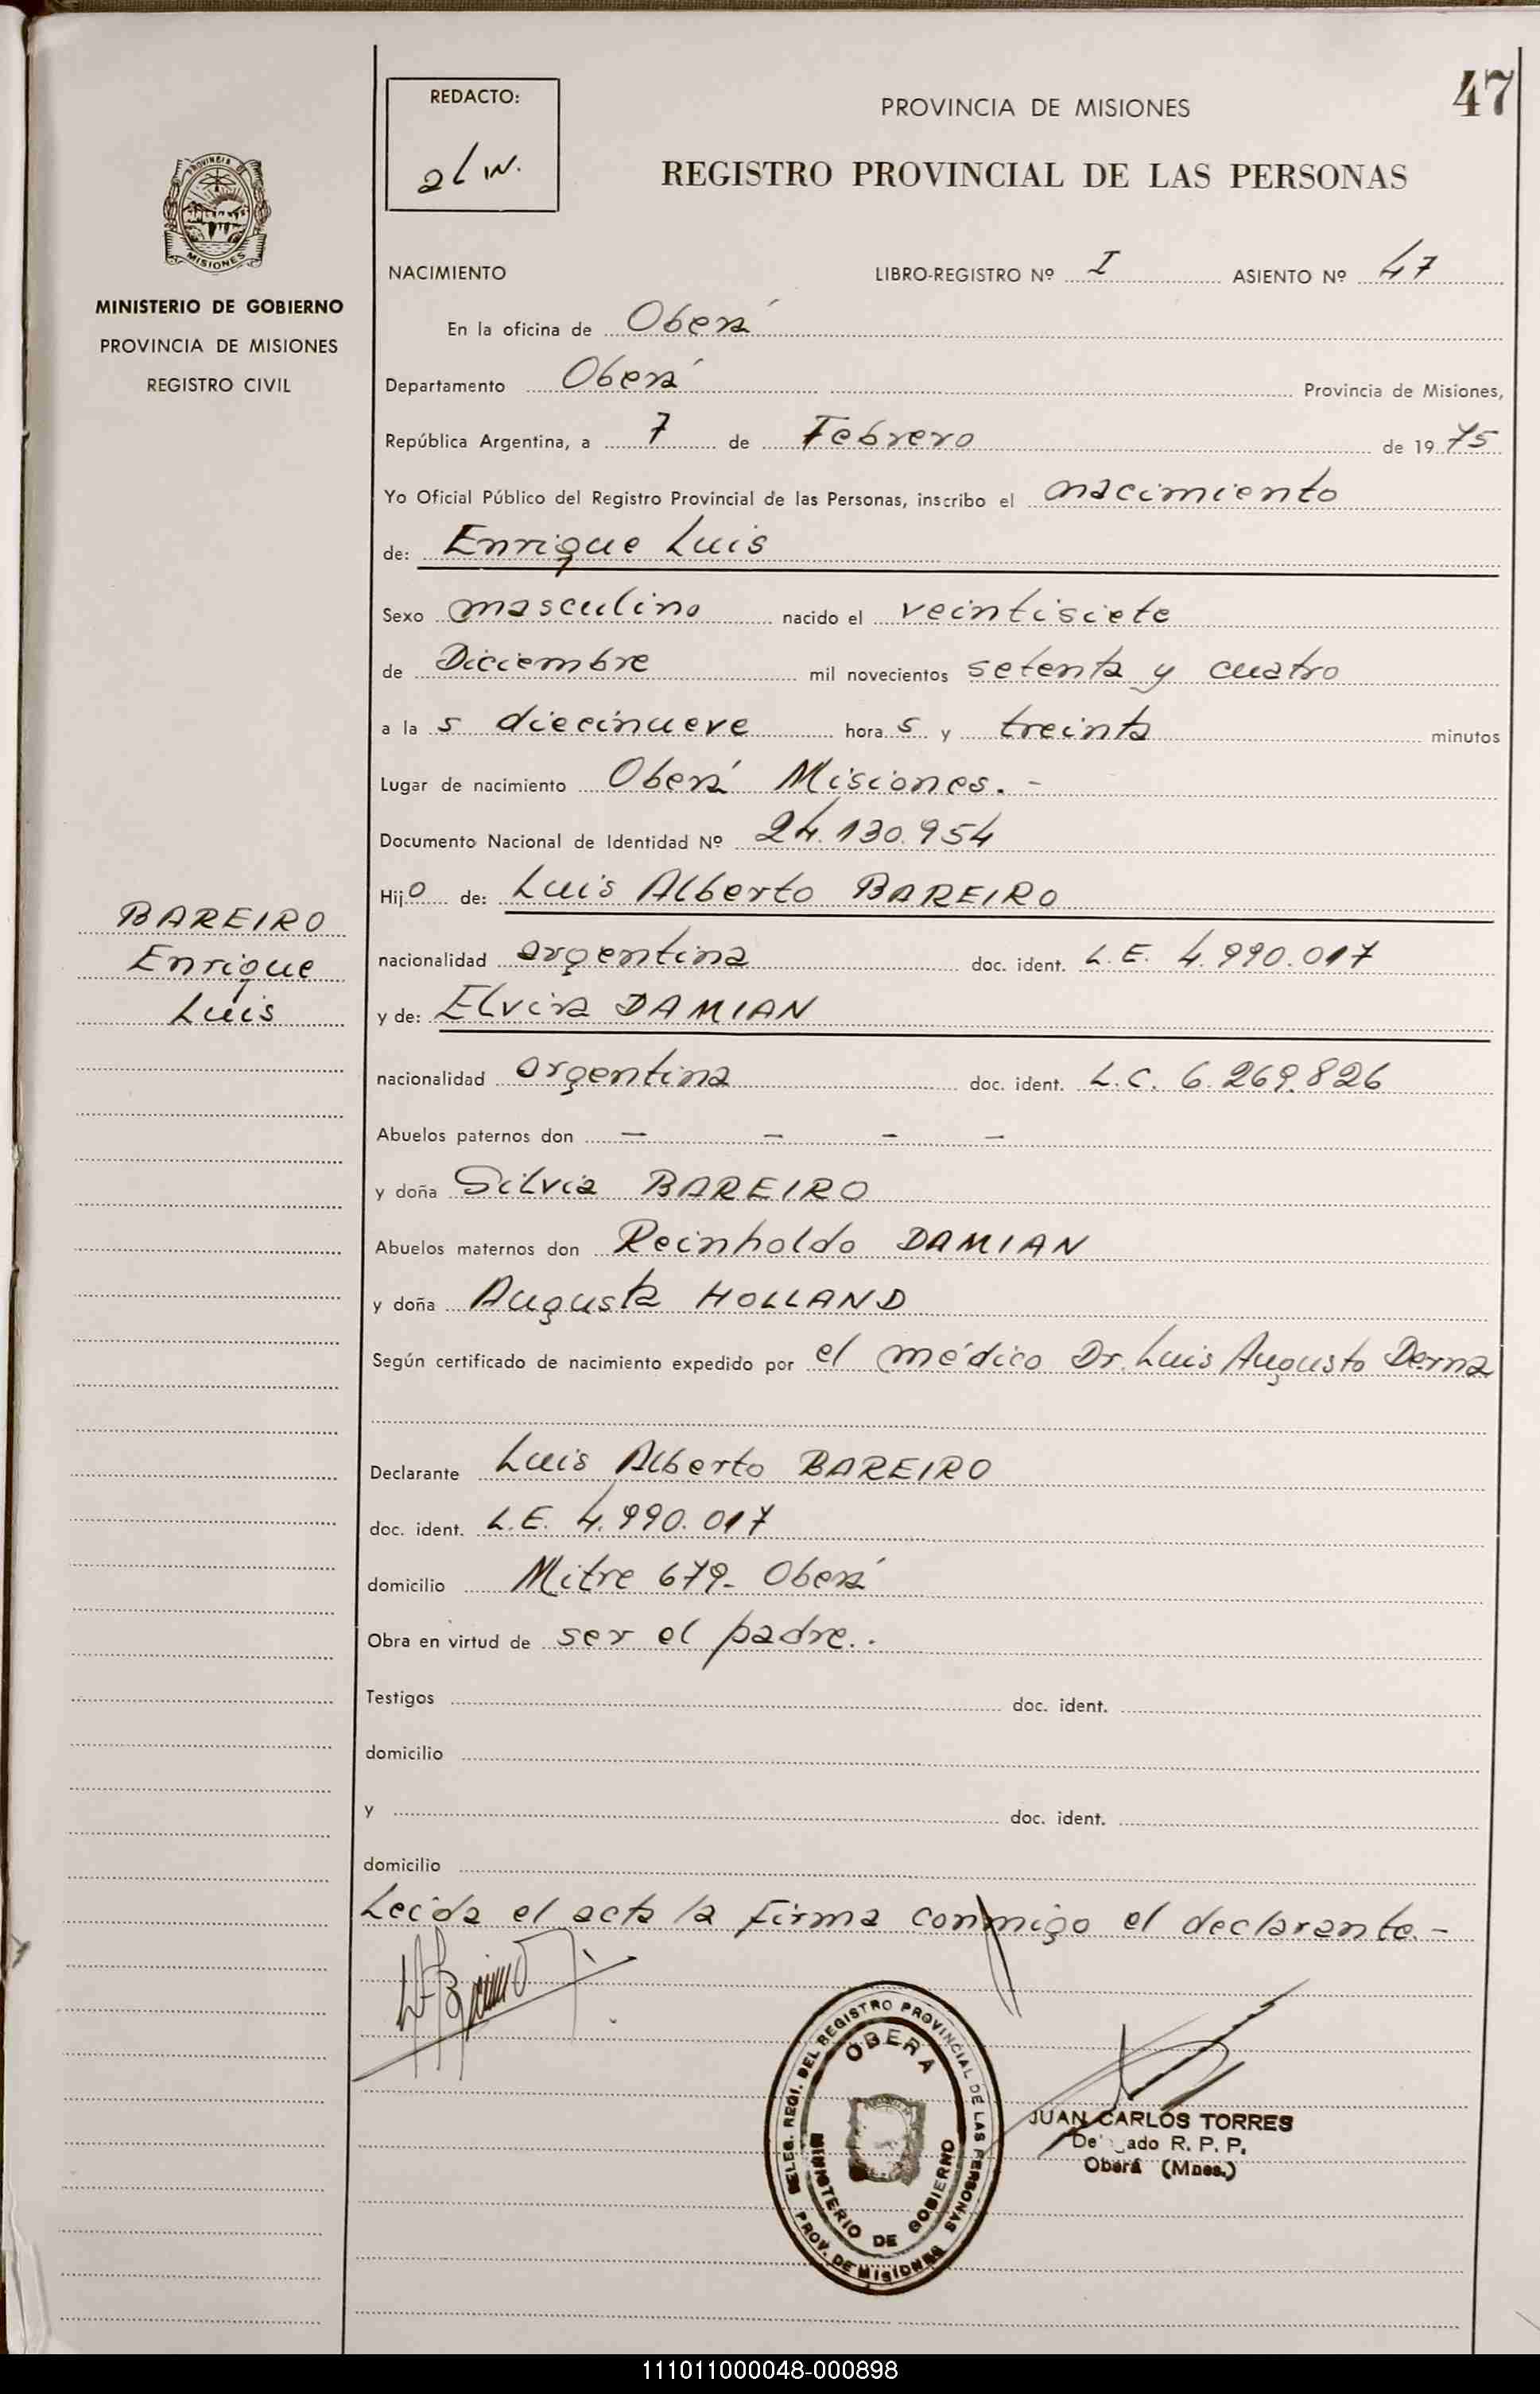 47
REDACTO:
PROVINCIA DE MISIONES
REGISTRO PROVINCIAL DE LAS PERSONAS
PROVINCIA
MISIONES
MINISTERIO DE GOBIERNO
PROVINCIA DE MISIONES
REGISTRO CIVIL
NACIMIENTO LIBRO-REGISTRO Nº I ASIENTO Nº 47
En la oficina de Oberá
Departamento Oberá Provincia de Misiones,
República Argentina, a 7 de Febrero de 1975
Yo Oficial Público del Registro Provincial de las Personas, inscribo el nacimiento
de: Enrique Luis
Sexo masculino nacido el veintisiete
de Diciembre mil novecientos setenta y cuatro
a las diecinueve horas y treinta minutos
Lugar de nacimiento Oberá Misiones. -
Documento Nacional de Identidad Nº 24.130.954
Hijo de: Luis Alberto BAREIRO
BAREIRO
Enrique
Luis
nacionalidad argentina doc. ident. L.E. 4.990.017
y de: Elvira DAMIAN
nacionalidad argentina doc. ident. L.C. 6.269.826
Abuelos paternos don — — — —
y doña Silvia BAREIRO
Abuelos maternos don Reinholdo DAMIAN
y doña Augusta HOLLAND
Según certificado de nacimiento expedido por el médico Dr. Luis Augusto Derna
Declarante Luis Alberto BAREIRO
doc. ident. L.E. 4.990.017
domicilio Mitre 679- Oberá
Obra en virtud de ser el padre..
Testigos doc. ident.
domicilio
y doc. ident.
domicilio
Leída el acta la firma conmigo el declarante.-
DELEG. REGI. DEL REGISTRO PROVINCIAL DE LAS PERSONAS
OBERA
MINISTERIO DE GOBIERNO
PROV. DE MISIONES
JUAN CARLOS TORRES
R. P. P.
Oberá (Mnes.)
111011000048-000898